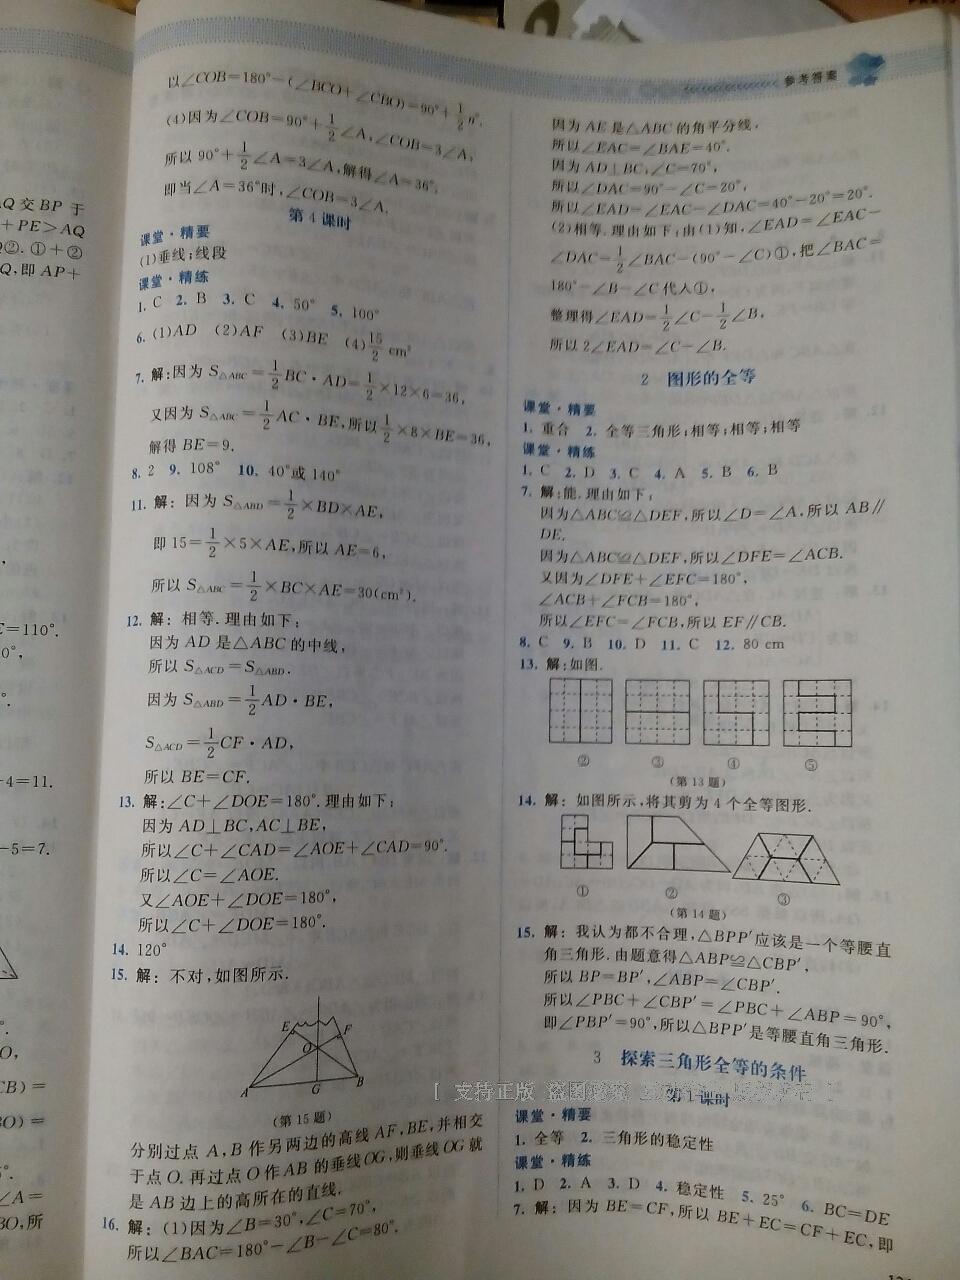 参考答案
AQ交BP于
+PE>AQ
Q②.①+②
Q,即AP+
E=110°.
0°,
-4=11.
-5=7.
O,
CB)=
BO)=
∠A=
BO,所
以∠COB=180°-(∠BCO+∠CBO)=90°+1/2n°.
(4)因为∠COB=90°+1/2∠A,∠COB=3∠A,
所以90°+1/2∠A=3∠A,解得∠A=36°,
即当∠A=36°时,∠COB=3∠A.
第4课时
课堂·精要
(1)垂线;线段
课堂·精练
1. C 2. B 3. C 4. 50° 5. 100°
6. (1)AD (2)AF (3)BE (4)15/2 cm²
7. 解:因为S△ABC=1/2BC·AD=1/2×12×6=36,
又因为S△ABC=1/2AC·BE,所以1/2×8×BE=36,
解得BE=9.
8. 2 9. 108° 10. 40°或140°
11. 解:因为S△ABD=1/2×BD×AE,
即15=1/2×5×AE,所以AE=6,
所以S△ABC=1/2×BC×AE=30(cm²).
12. 解:相等.理由如下:
因为AD是△ABC的中线,
所以S△ACD=S△ABD.
因为S△ABD=1/2AD·BE,
S△ACD=1/2CF·AD,
所以BE=CF.
13. 解:∠C+∠DOE=180°.理由如下:
因为AD⊥BC,AC⊥BE,
所以∠C+∠CAD=∠AOE+∠CAD=90°.
所以∠C=∠AOE.
又∠AOE+∠DOE=180°,
所以∠C+∠DOE=180°.
14. 120°
15. 解:不对,如图所示.
E F
O
A G B
(第15题)
分别过点A,B作另两边的高线AF,BE,并相交
于点O.再过点O作AB的垂线OG,则垂线OG就
是AB边上的高所在的直线.
16. 解:(1)因为∠B=30°,∠C=70°,
所以∠BAC=180°-∠B-∠C=80°.
因为AE是△ABC的角平分线,
所以∠EAC=∠BAE=40°.
因为AD⊥BC,∠C=70°,
所以∠DAC=90°-∠C=20°,
所以∠EAD=∠EAC-∠DAC=40°-20°=20°.
(2)相等.理由如下:由(1)知,∠EAD=∠EAC-
∠DAC=1/2∠BAC-(90°-∠C)①,把∠BAC=
180°-∠B-∠C代入①,
整理得∠EAD=1/2∠C-1/2∠B,
所以2∠EAD=∠C-∠B.
2 图形的全等
课堂·精要
1. 重合 2. 全等三角形;相等;相等;相等
课堂·精练
1. C 2. D 3. C 4. A 5. B 6. B
7. 解:能.理由如下:
因为△ABC≌△DEF,所以∠D=∠A,所以AB∥
DE.
因为△ABC≌△DEF,所以∠DFE=∠ACB.
又因为∠DFE+∠EFC=180°,
∠ACB+∠FCB=180°,
所以∠EFC=∠FCB,所以EF∥CB.
8. C 9. B 10. D 11. C 12. 80 cm
13. 解:如图.
② ③ ④ ⑤
(第13题)
14. 解:如图所示,将其剪为4个全等图形.
① ② ③
(第14题)
15. 解:我认为都不合理,△BPP′应该是一个等腰直
角三角形.由题意得△ABP≌△CBP′,
所以BP=BP′,∠ABP=∠CBP′.
所以∠PBC+∠CBP′=∠PBC+∠ABP=90°,
即∠PBP′=90°,所以△BPP′是等腰直角三角形.
3 探索三角形全等的条件
[ 支持正版 盗图必究
第1课时
课堂·精要
1. 全等 2. 三角形的稳定性
课堂·精练
1. D 2. A 3. D 4. 稳定性 5. 25° 6. BC=DE
7. 解:因为BE=CF,所以BE+EC=CF+EC,即